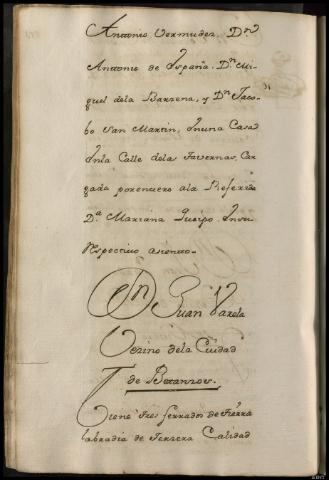 Antonio Vermudez, Dn
Antonio de España, Dn Mi-
guel dela Barzena, y Dn Jaco-
bo San Martin, Inuna Casa
Inla Calle delas Tavernas, Car-
gada porentero ala Referida
Da Mariana Queipo, Insu
Respectivo asiento-
Dn Juan Varela
Vezino dela Ciudad
de Betanzos.
Tiene tres ferrados de tierra
labradia de Terzera Calidad